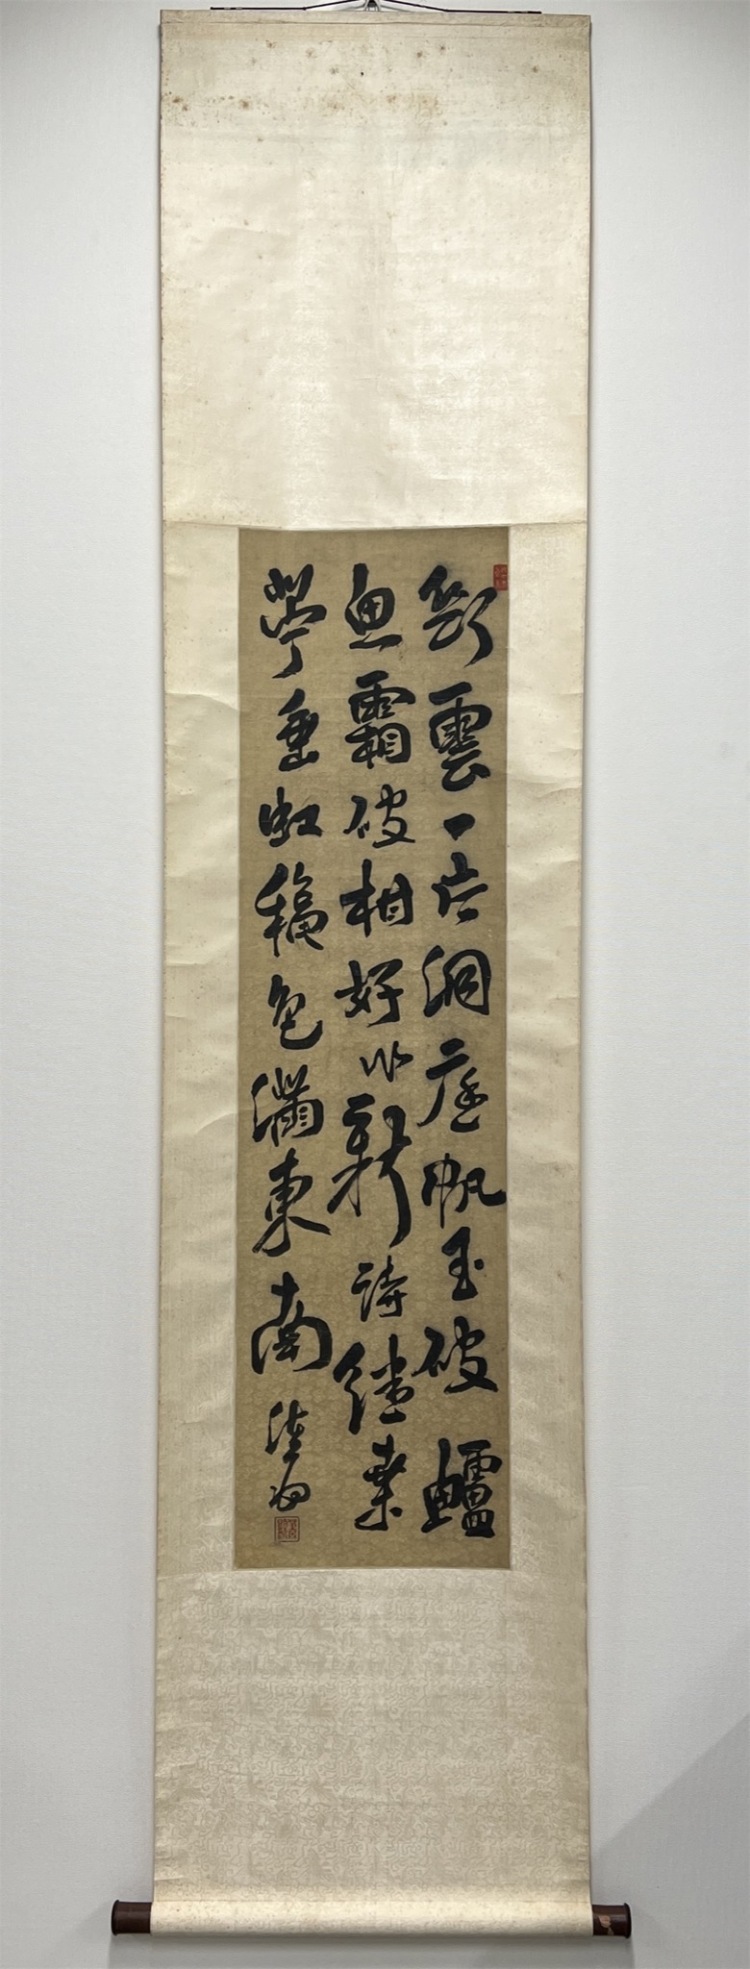 斷雲一片洞庭帆玉破鱸
魚霜破柑好作新詩繼桑
苧垂虹穐色滿東南